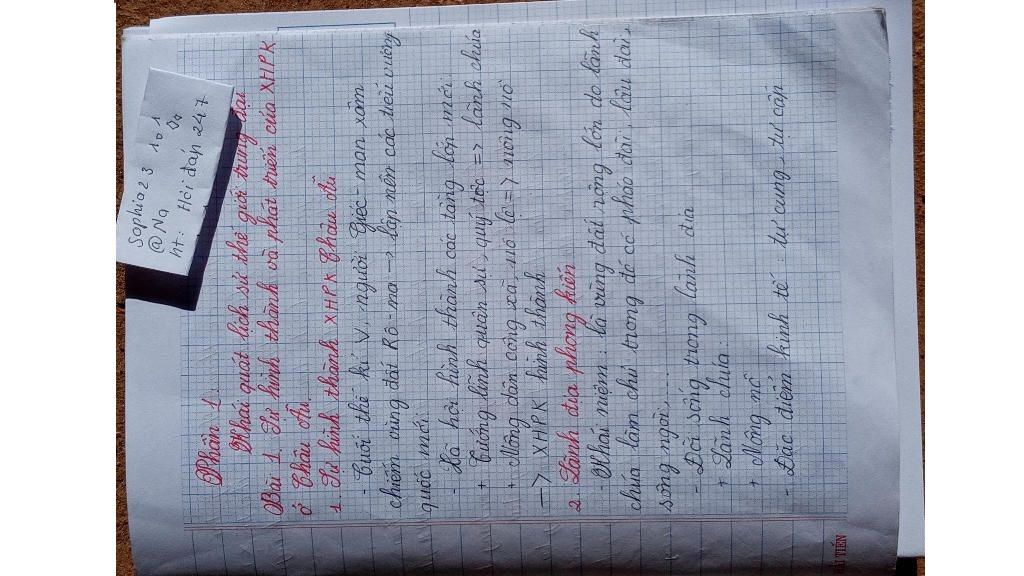 Sophia23 101
@Na Qa
ht: Hỏi đáp 247
Phần 1:
Khái quát lịch sử thế giới trung đại
Bài 1 Sự hình thành và phát triển của XHPK
ở Châu Âu.
1. Sự hình thành XHPK Châu Âu
- Cuối thế kỉ V, người Giéc-man xâm
chiếm vùng đất Rô-ma → lập nên các tiểu vương
quốc mới.
- Xã hội hình thành các tầng lớn mới.
+ Tướng lĩnh quân sự, quý tộc => lãnh chúa
+ Nông dân công xã, nô lệ => nông nô
→ XHPK hình thành
2. Lãnh địa phong kiến
- Khái niệm: là vùng đất rộng lớn do lãnh
chúa làm chủ trong đó có pháo đài, lâu đài,
sông ngòi,...
- Đời sống trong lãnh địa
+ Lãnh chúa:
+ Nông nô
- Đặc điểm kinh tế: tự cung, tự cấp
HẢI TIẾN